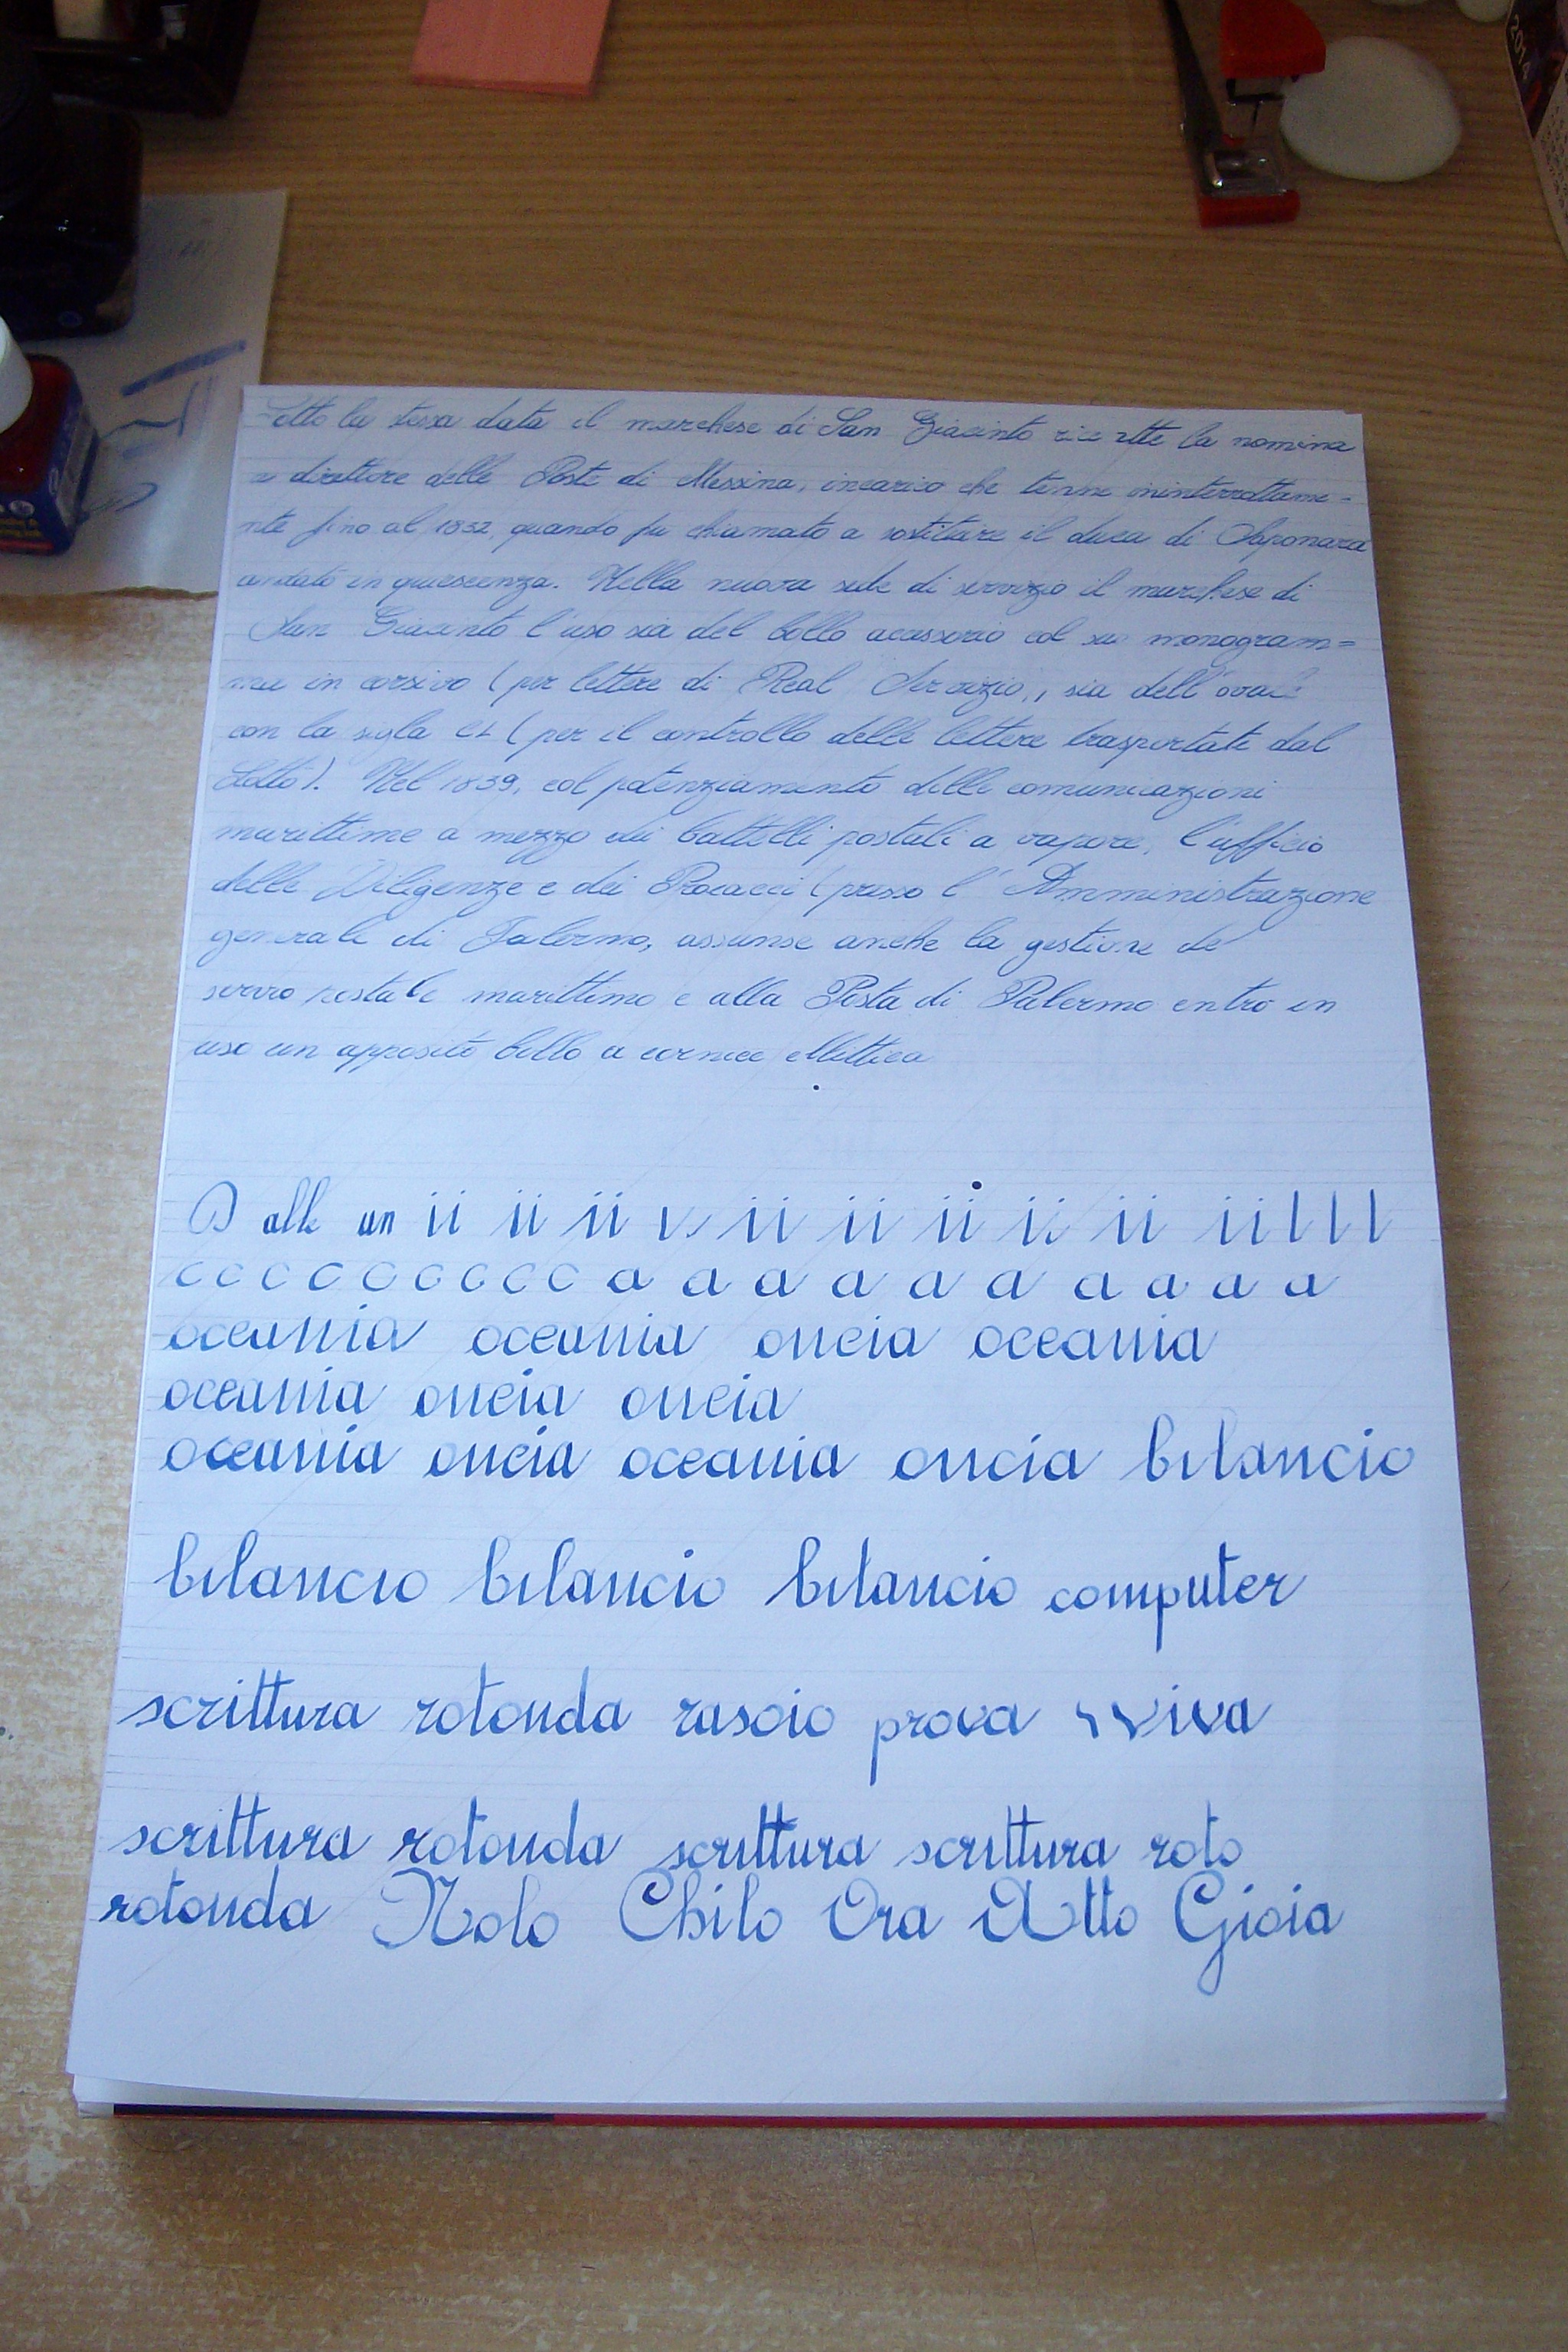 2014
Sotto la stessa data il marchese di San Giacinto ricevette la nomina
a direttore delle Poste di Messina, incarico che tenne ininterrottame-
nte fino al 1832, quando fu chiamato a sostituire il duca di Saponara
andato in quiescenza. Nella nuova sede di servizio il marchese di
San Giacinto l'uso sia del bollo accessorio col suo monogram=
ma in corsivo (per lettere di Real Servizio), sia dell'ovale
con la sigla (per il controllo delle lettere trasportate dal
Lotto). Nel 1839, col potenziamento delle comunicazioni
marittime a mezzo dei battelli postali a vapore, l'ufficio
delle Diligenze e dei Procacci (presso l'Amministrazione
generale di Palermo, assunse anche la gestione del
postale marittimo e alla Posta di Palermo entrò in
uso un apposito bollo a cornice ellittica
D alle un ii ii ii v ii ii ii ii ii ii l l l
c c c c c c c c c c a a a a a a a a a a
oceania oceania oncia oceania
oceania oncia oncia
oceania oncia oceania oncia bilancio
bilancio bilancio bilancio computer
scrittura rotonda rasoio prova vviva
scrittura rotonda scrittura scrittura roto
rotonda Nolo Chilo Ora Atto Gioia